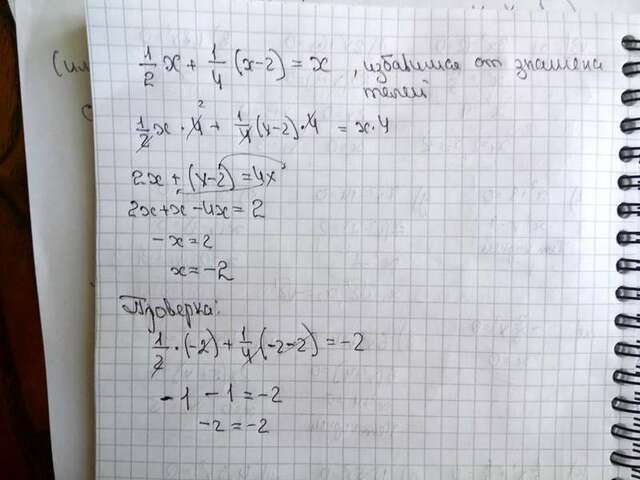 1/2 x + 1/4 (x-2) = x, избавимся от знамена
телей
1/2 x · 4 + 1/4 (x-2) · 4 = x · 4
2
2x + (x-2) = 4x
2x + x - 4x = 2
- x = 2
x = -2
Проверка:
1/2 · (-2) + 1/4 (-2-2) = -2
- 1 - 1 = -2
-2 = -2